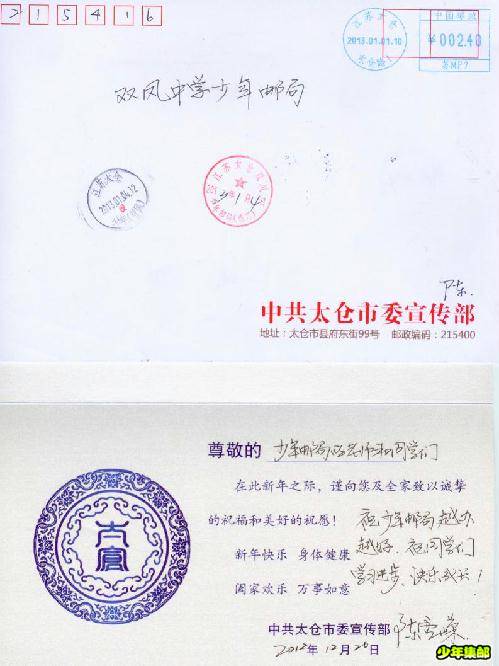 215416
中国邮政
江苏太仓
2013.01.01.10
¥002.40
苏MP7
双凤中学少年邮局
江苏太仓
2013.01.04.12
陈
中共太仓市委宣传部
地址：太仓市县府东街99号 邮政编码：215400
尊敬的 少年邮局的老师和同学们
在此新年之际，谨向您及全家致以诚挚
的祝福和美好的祝愿！ 祝少年邮局越办
新年快乐 身体健康 越好，祝同学们
学习进步、快乐成长！
阖家欢乐 万事如意
中共太仓市委宣传部 陈雪嵘
2012年12月26日
少年集邮